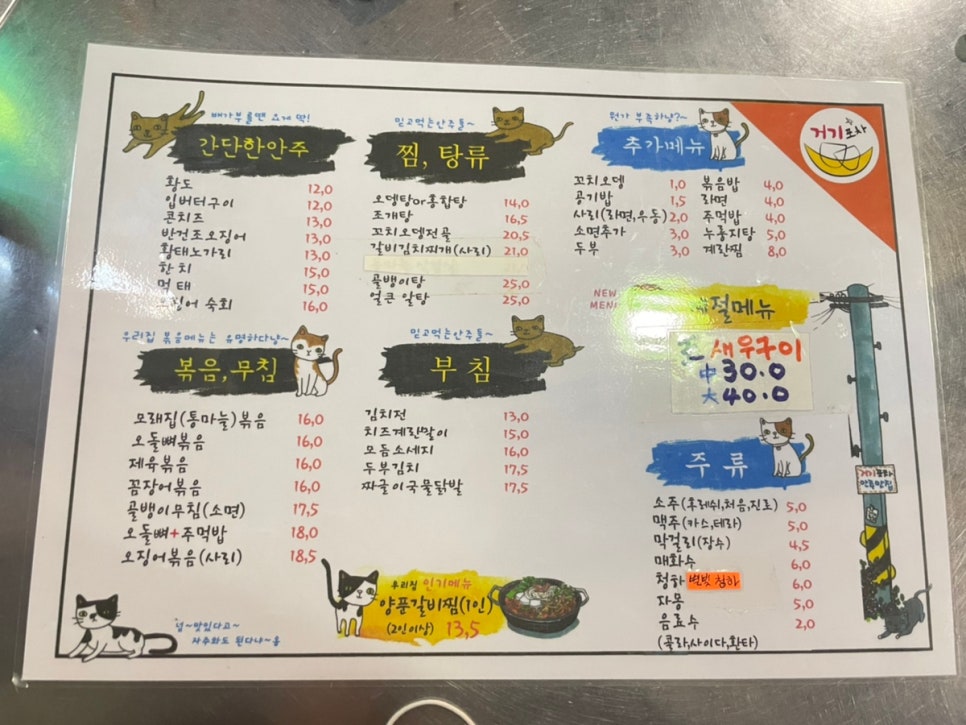 배가부를땐 요게 딱!
간단한안주
황도 12,0
입버터구이 12,0
콘치즈 13,0
반건조오징어 13,0
황태노가리 13,0
한치 15,0
먹태 15,0
숙회 16,0
믿고먹는안주들~
찜, 탕류
오뎅탕or홍합탕 14,0
조개탕 16,5
꼬치오뎅전골 20,5
갈비김치찌개(사리) 21,0
골뱅이탕 25,0
얼큰 알탕 25,0
뭔가 부족하냥?~
추가메뉴
꼬치오뎅 1,0
공기밥 1,5
사리(라면,우동) 2,0
소면추가 3,0
두부 3,0
볶음밥 4,0
라면 4,0
주먹밥 4,0
누룽지탕 5,0
계란찜 8,0
거기포차
우리집 볶음메뉴는 유명하다냥~
볶음,무침
모래집(통마늘)볶음 16,0
오돌뼈볶음 16,0
제육볶음 16,0
꼼장어볶음 16,0
골뱅이무침(소면) 17,5
오돌뼈+주먹밥 18,0
오징어볶음(사리) 18,5
믿고먹는안주들~
부침
김치전 13,0
치즈계란말이 15,0
모듬소세지 16,0
두부김치 17,5
짜글이국물닭발 17,5
NEW
MENU
절메뉴
새우구이
中 30.0
大 40.0
주류
소주(후레쉬,처음,진로) 5,0
맥주(카스,테라) 5,0
막걸리(장수) 4,5
매화수 6,0
청하 별빛 청하 6,0
자몽 5,0
음료수 2,0
(콜라,사이다,환타)
거기포차
안주맛집
우리집 인기메뉴
양푼갈비찜(1인)
(2인이상) 13,5
넘~맛있다고~
자주와도 된다냐~옹